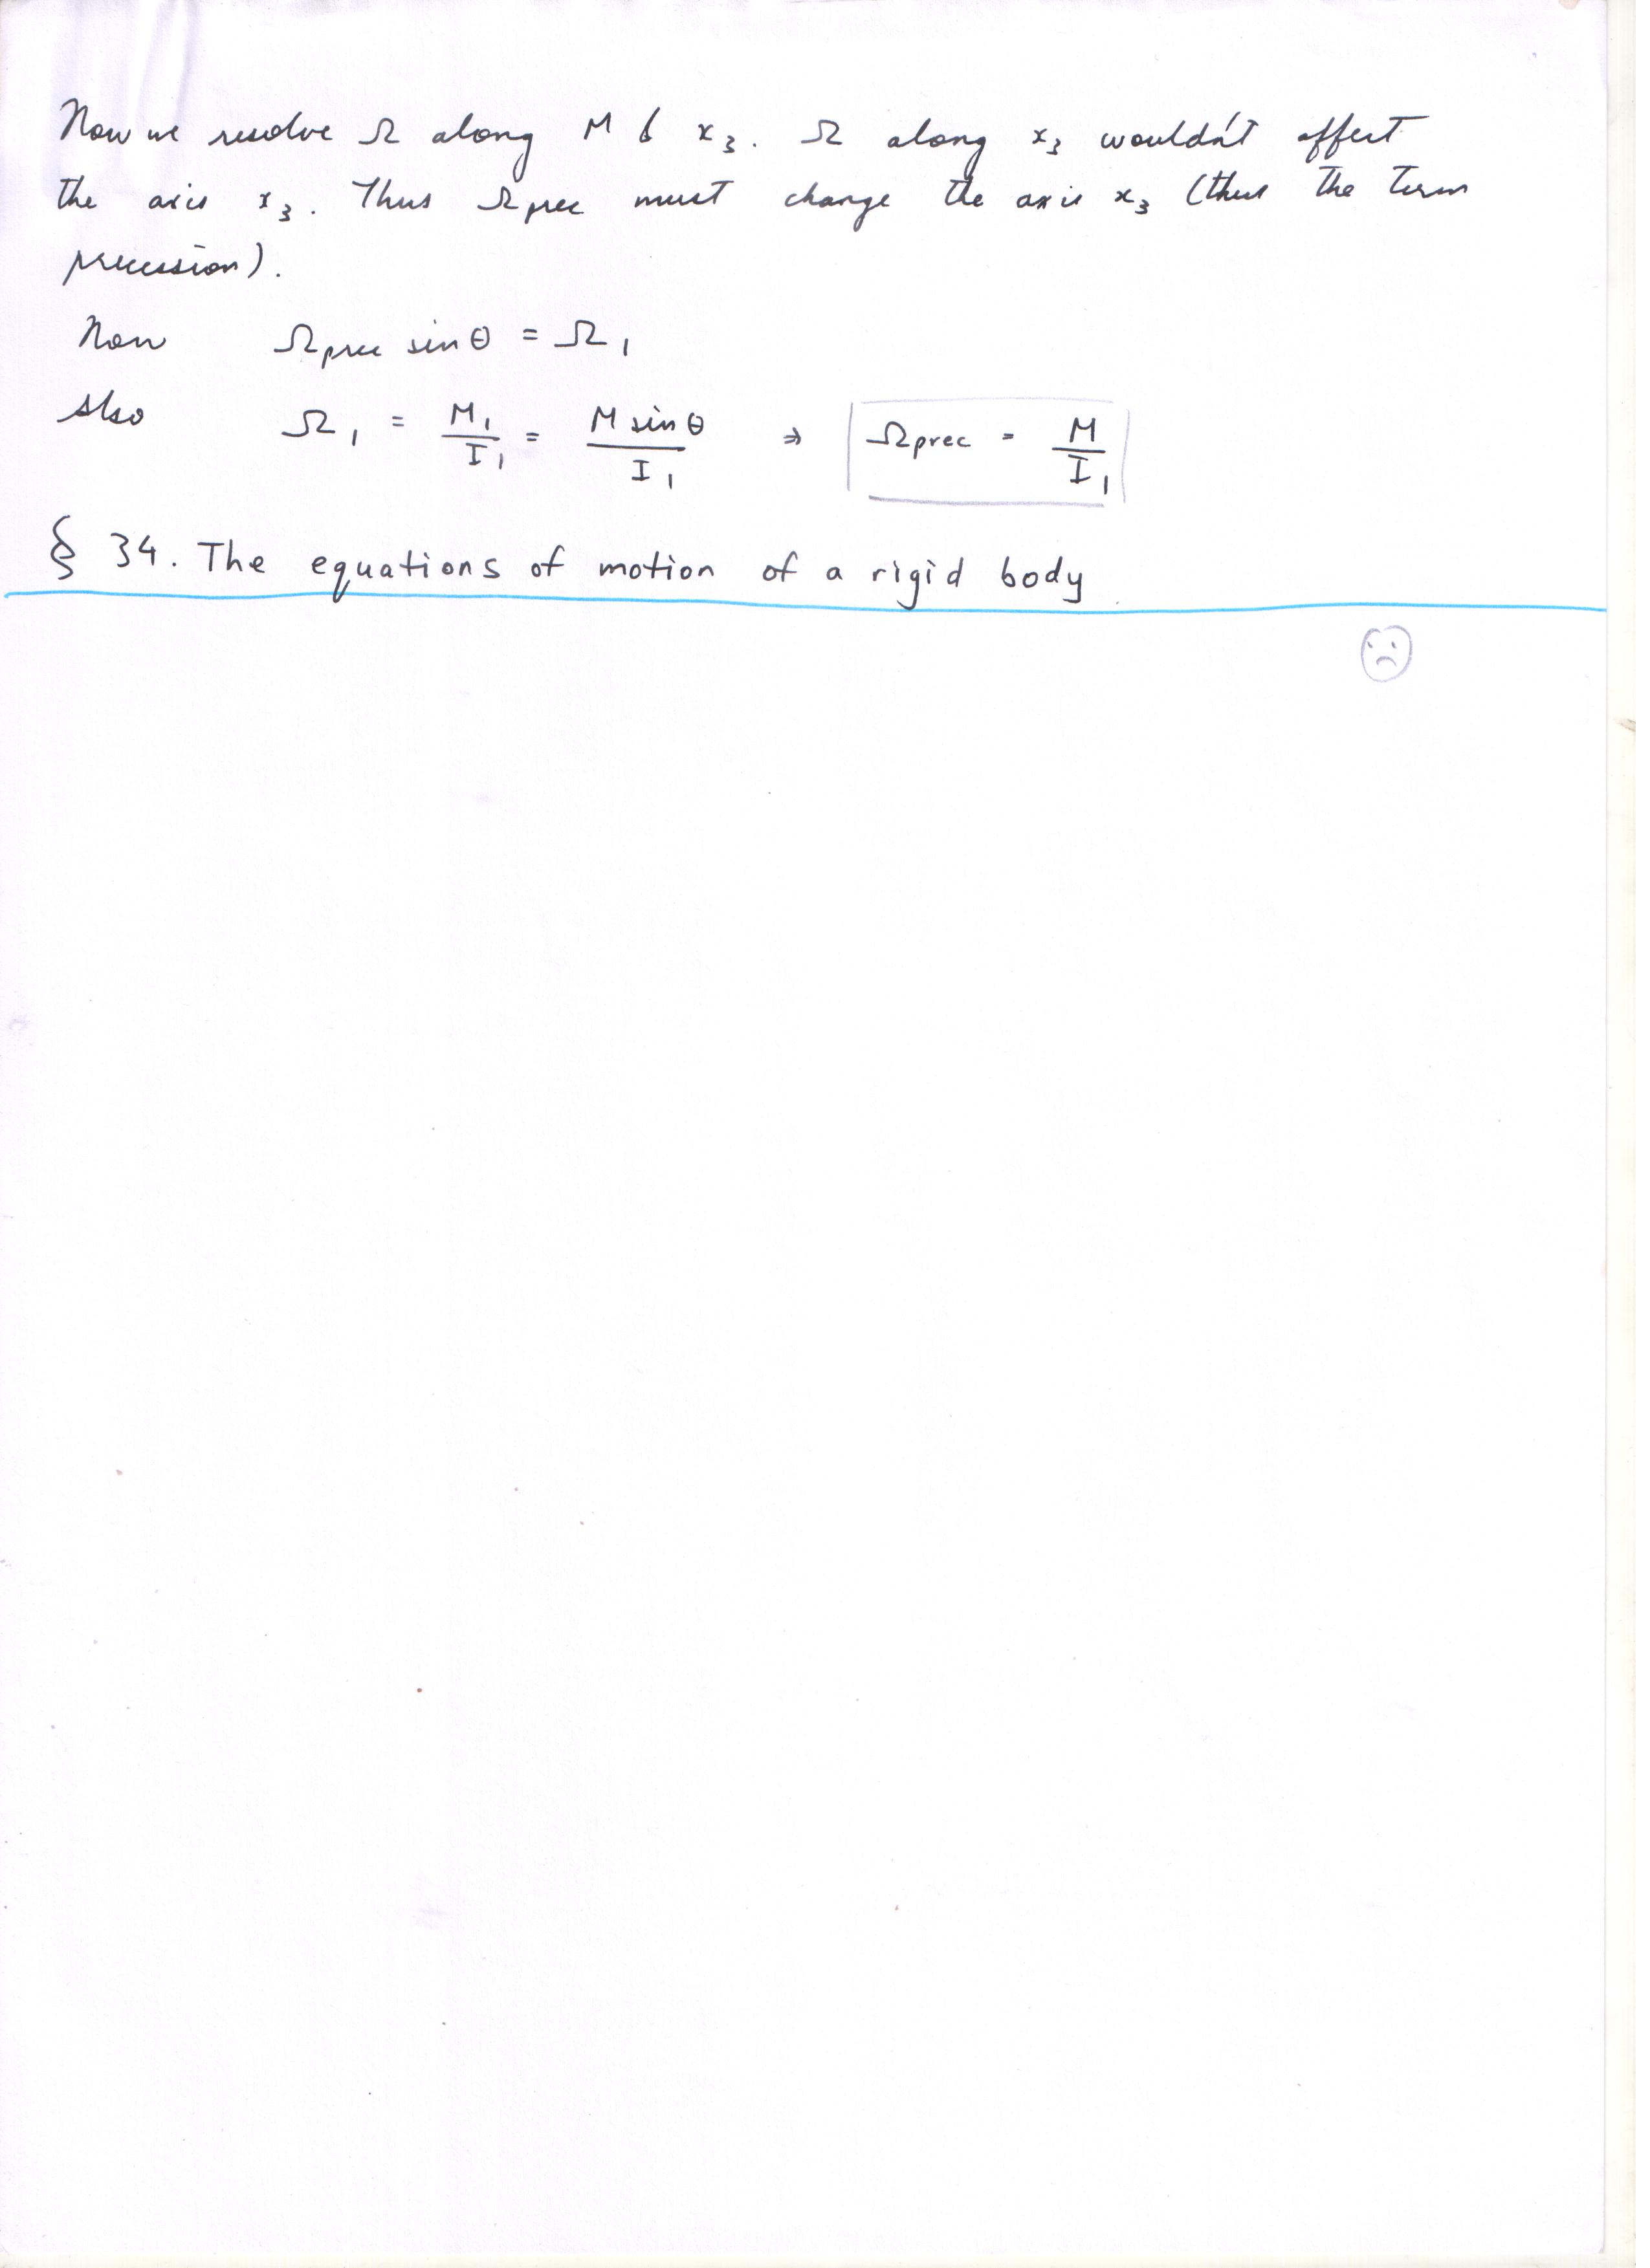 Now we resolve Ω along M & x₃. Ω along x₃ wouldn't affect
the axis x₃. Thus Ωprec must change the axis x₃ (thus the term
precession).
Now Ωprec sin θ = Ω₁
Also Ω₁ = M₁/I₁ = M sin θ/I₁ ⇒ Ωprec = M/I₁
§ 34. The equations of motion of a rigid body